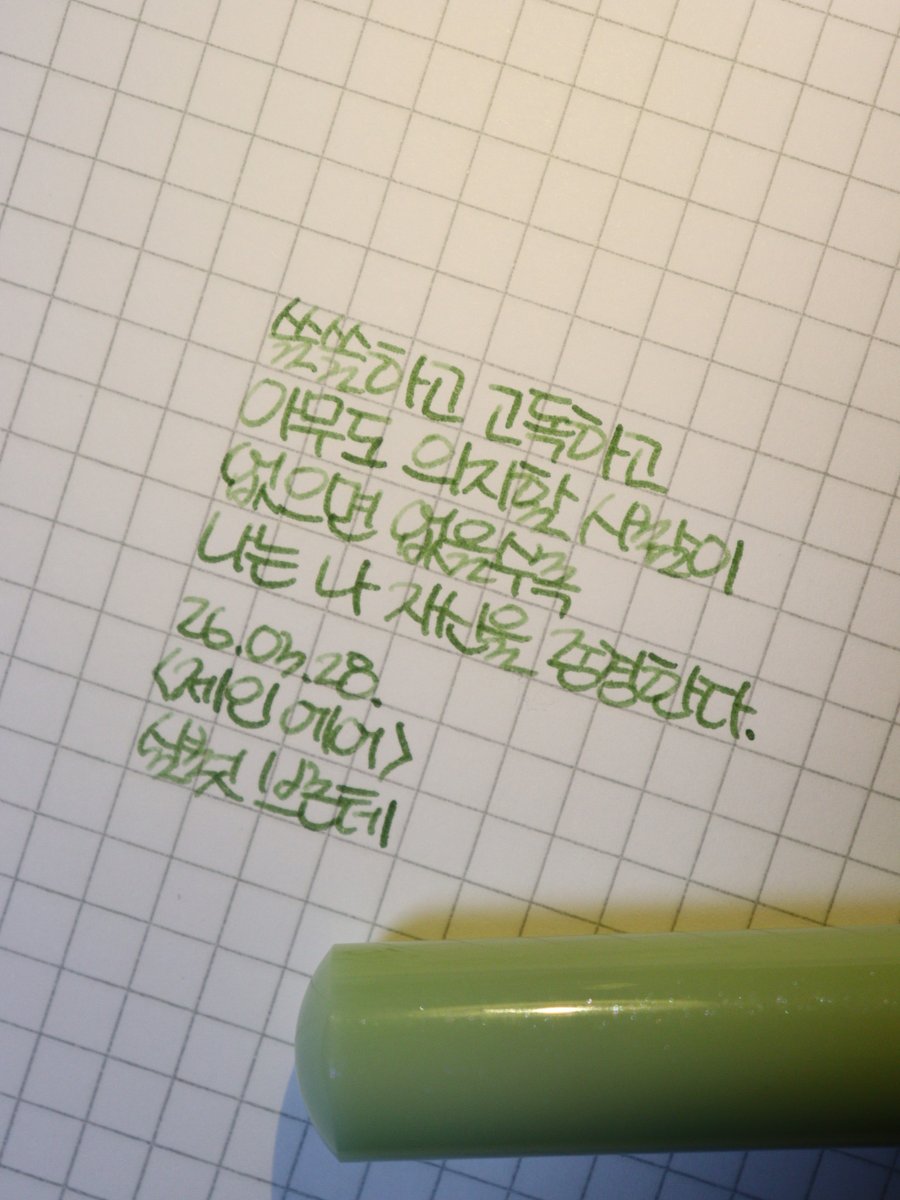 쓸쓸하고 고독하고
아무도 의지할 사람이
없으면 없을수록
나는 나 자신을 존경한다.
26.03.28.
<제인 에어>
샬럿 브론테